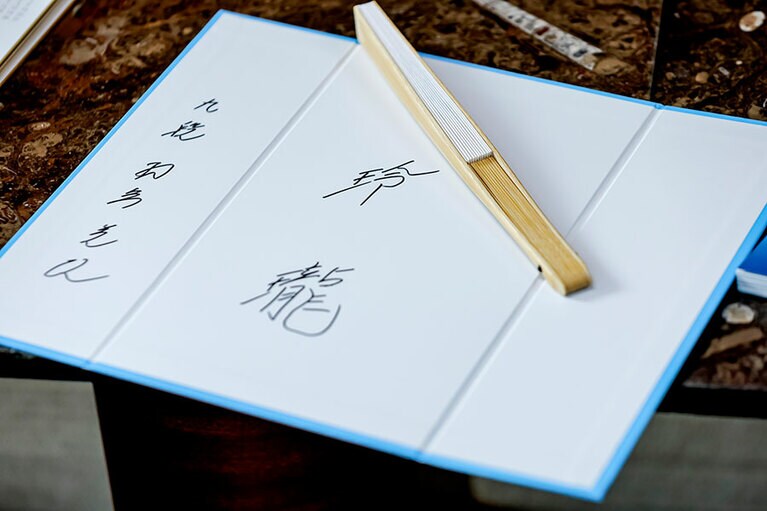 玲瓏
九段 羽生善治